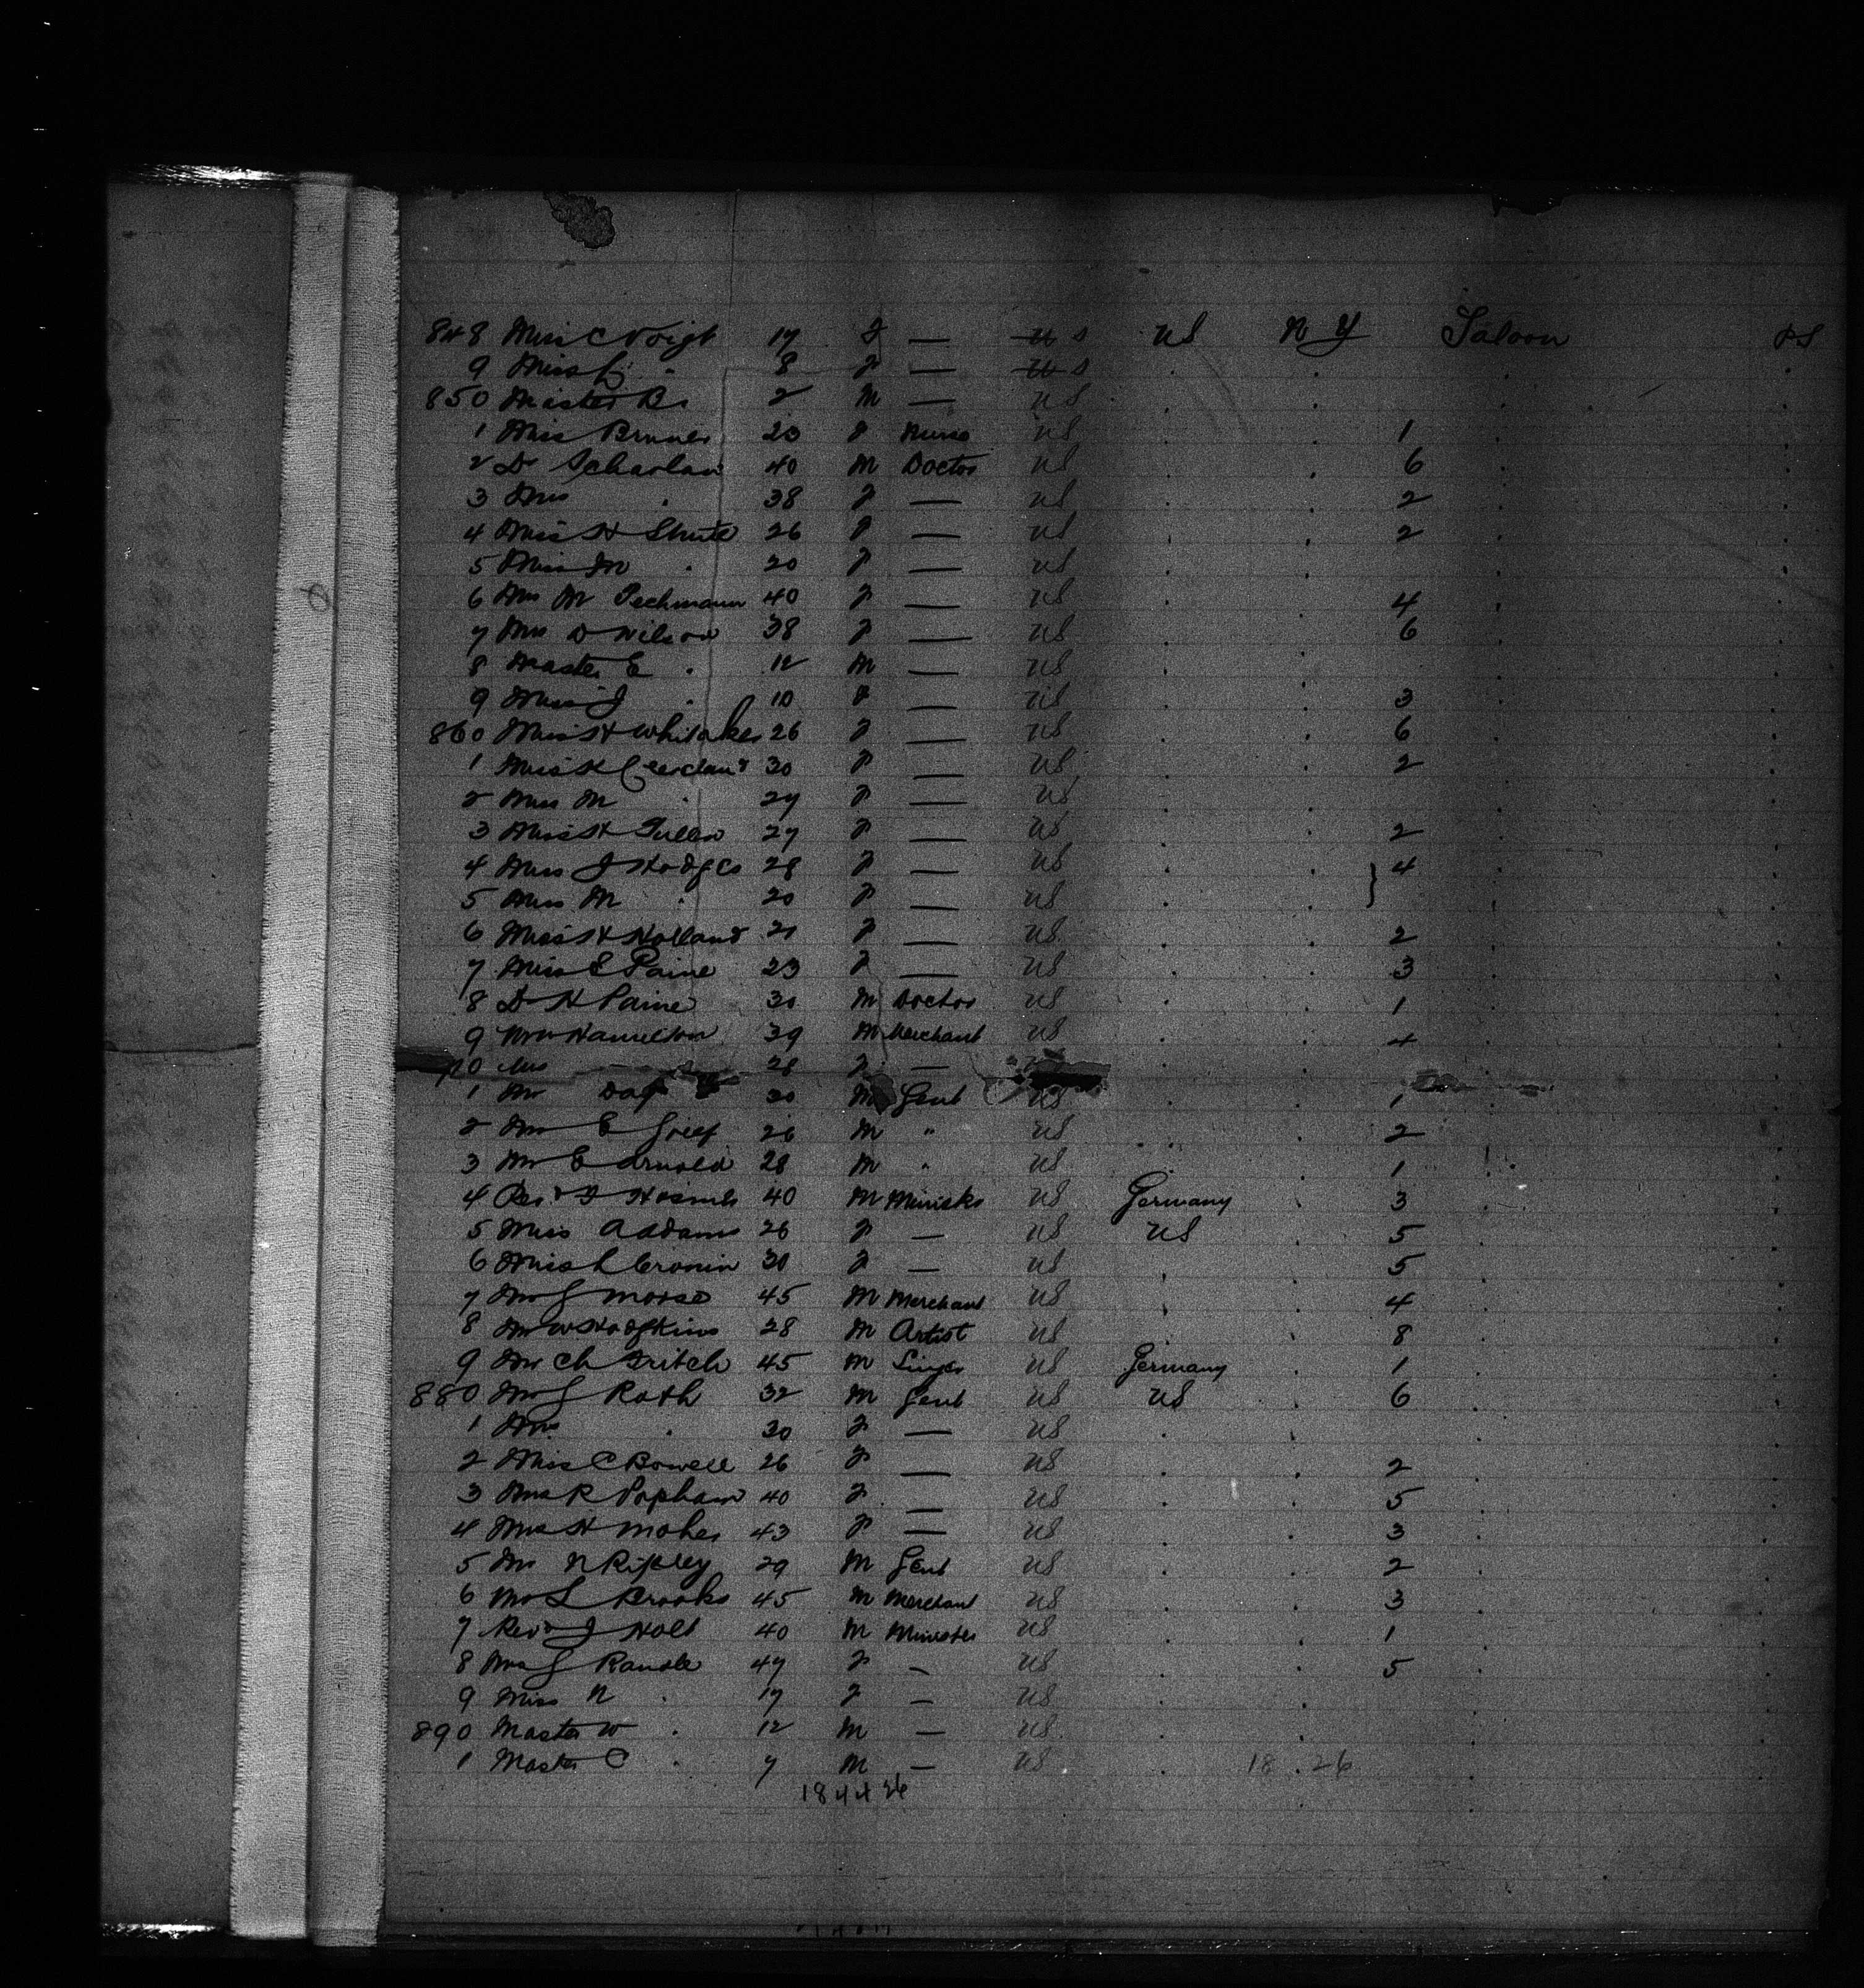 848 Miss C Voigt 17 F — US US N Y Saloon PS
9 Miss 8 F — US
850 Master B. 2 M — US
1 Miss Bruner 20 F Nurse US 1
2 Dr Scharlau 40 M Doctor US 6
3 Mrs " 38 F — US 2
4 Miss H Shute 26 F — US 2
5 Miss M " 20 F — US
6 Mrs M Pechmann 40 F — US 4
7 Mrs D Wilson 38 F — US 6
8 Master E " 12 M — US
9 Miss J " 10 F — US 3
860 Miss H Whitaker 26 F — US 6
1 Miss H 30 F — US 2
2 Miss M " 27 F — US
3 Miss H Fuller 27 F — US 2
4 Miss J Hodges 28 F — US } 4
5 Miss M " 20 F — US
6 Miss H Holland 21 F — US 2
7 Miss E Paine 23 F — US 3
8 Dr H Paine 30 M Doctor US 1
9 Mr W Hamilton 39 M Merchant US 4
70 Mrs 28 F —
1 Mr Day 30 M Gent US 1
2 Mr E 26 M " US 2
3 Mr E Arnold 28 M " US 1
4 Revd F Hosmer 40 M Minister US Germany 3
5 Miss Addams 26 F — US US 5
6 Miss L Cronin 30 F — US 5
7 Mr J Morse 45 M Merchant US 4
8 Mr W Hodgkins 28 M Artist US 8
9 Mr Ch Fritch 45 M Singer US Germany 1
880 Mr J Roth 32 M Gent US US 6
1 Mrs " 30 F — US
2 Miss C Bowell 26 F — US 2
3 Mrs R Popham 40 F — US 5
4 Mrs H Moher 43 F — US 3
5 Mr N Ripley 29 M Gent US 2
6 Mr L Brooks 45 M Merchant US 3
7 Revd J Holt 40 M Minister US 1
8 Mrs J Randle 47 F — US 5
9 Miss N " 17 F — US
890 Master W " 12 M — US
1 Master C " 7 M — US 18 . 26